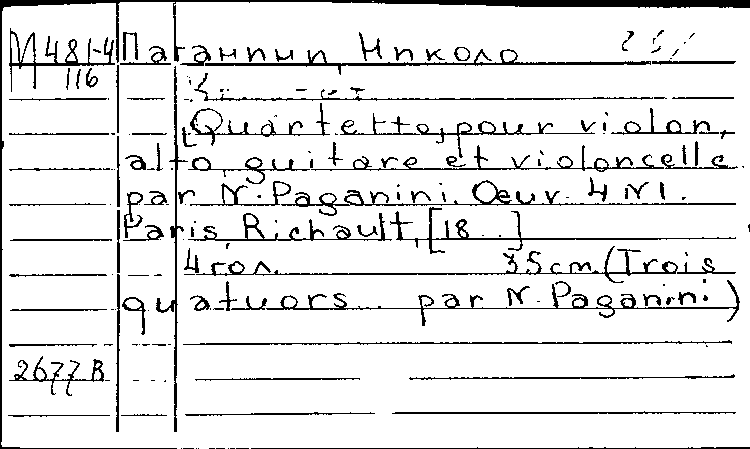 М481-4 Паганини, Николо
116
[Quartetto, pour violon,
alto, guitare et violoncelle
par N. Paganini. Oeuv. 4 N1.
Paris, Richault, [18 . . ]
4 гол. 35cm. (Trois
quatuors... par N. Paganini)
2677 В